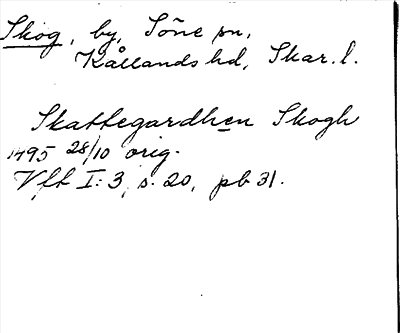 Skog, by, Söne sn,
Kållands hd, Skar. l.
Skattegardhen Skogh
1495 28/10 orig.
Vft I:3, s. 20, pb 31.